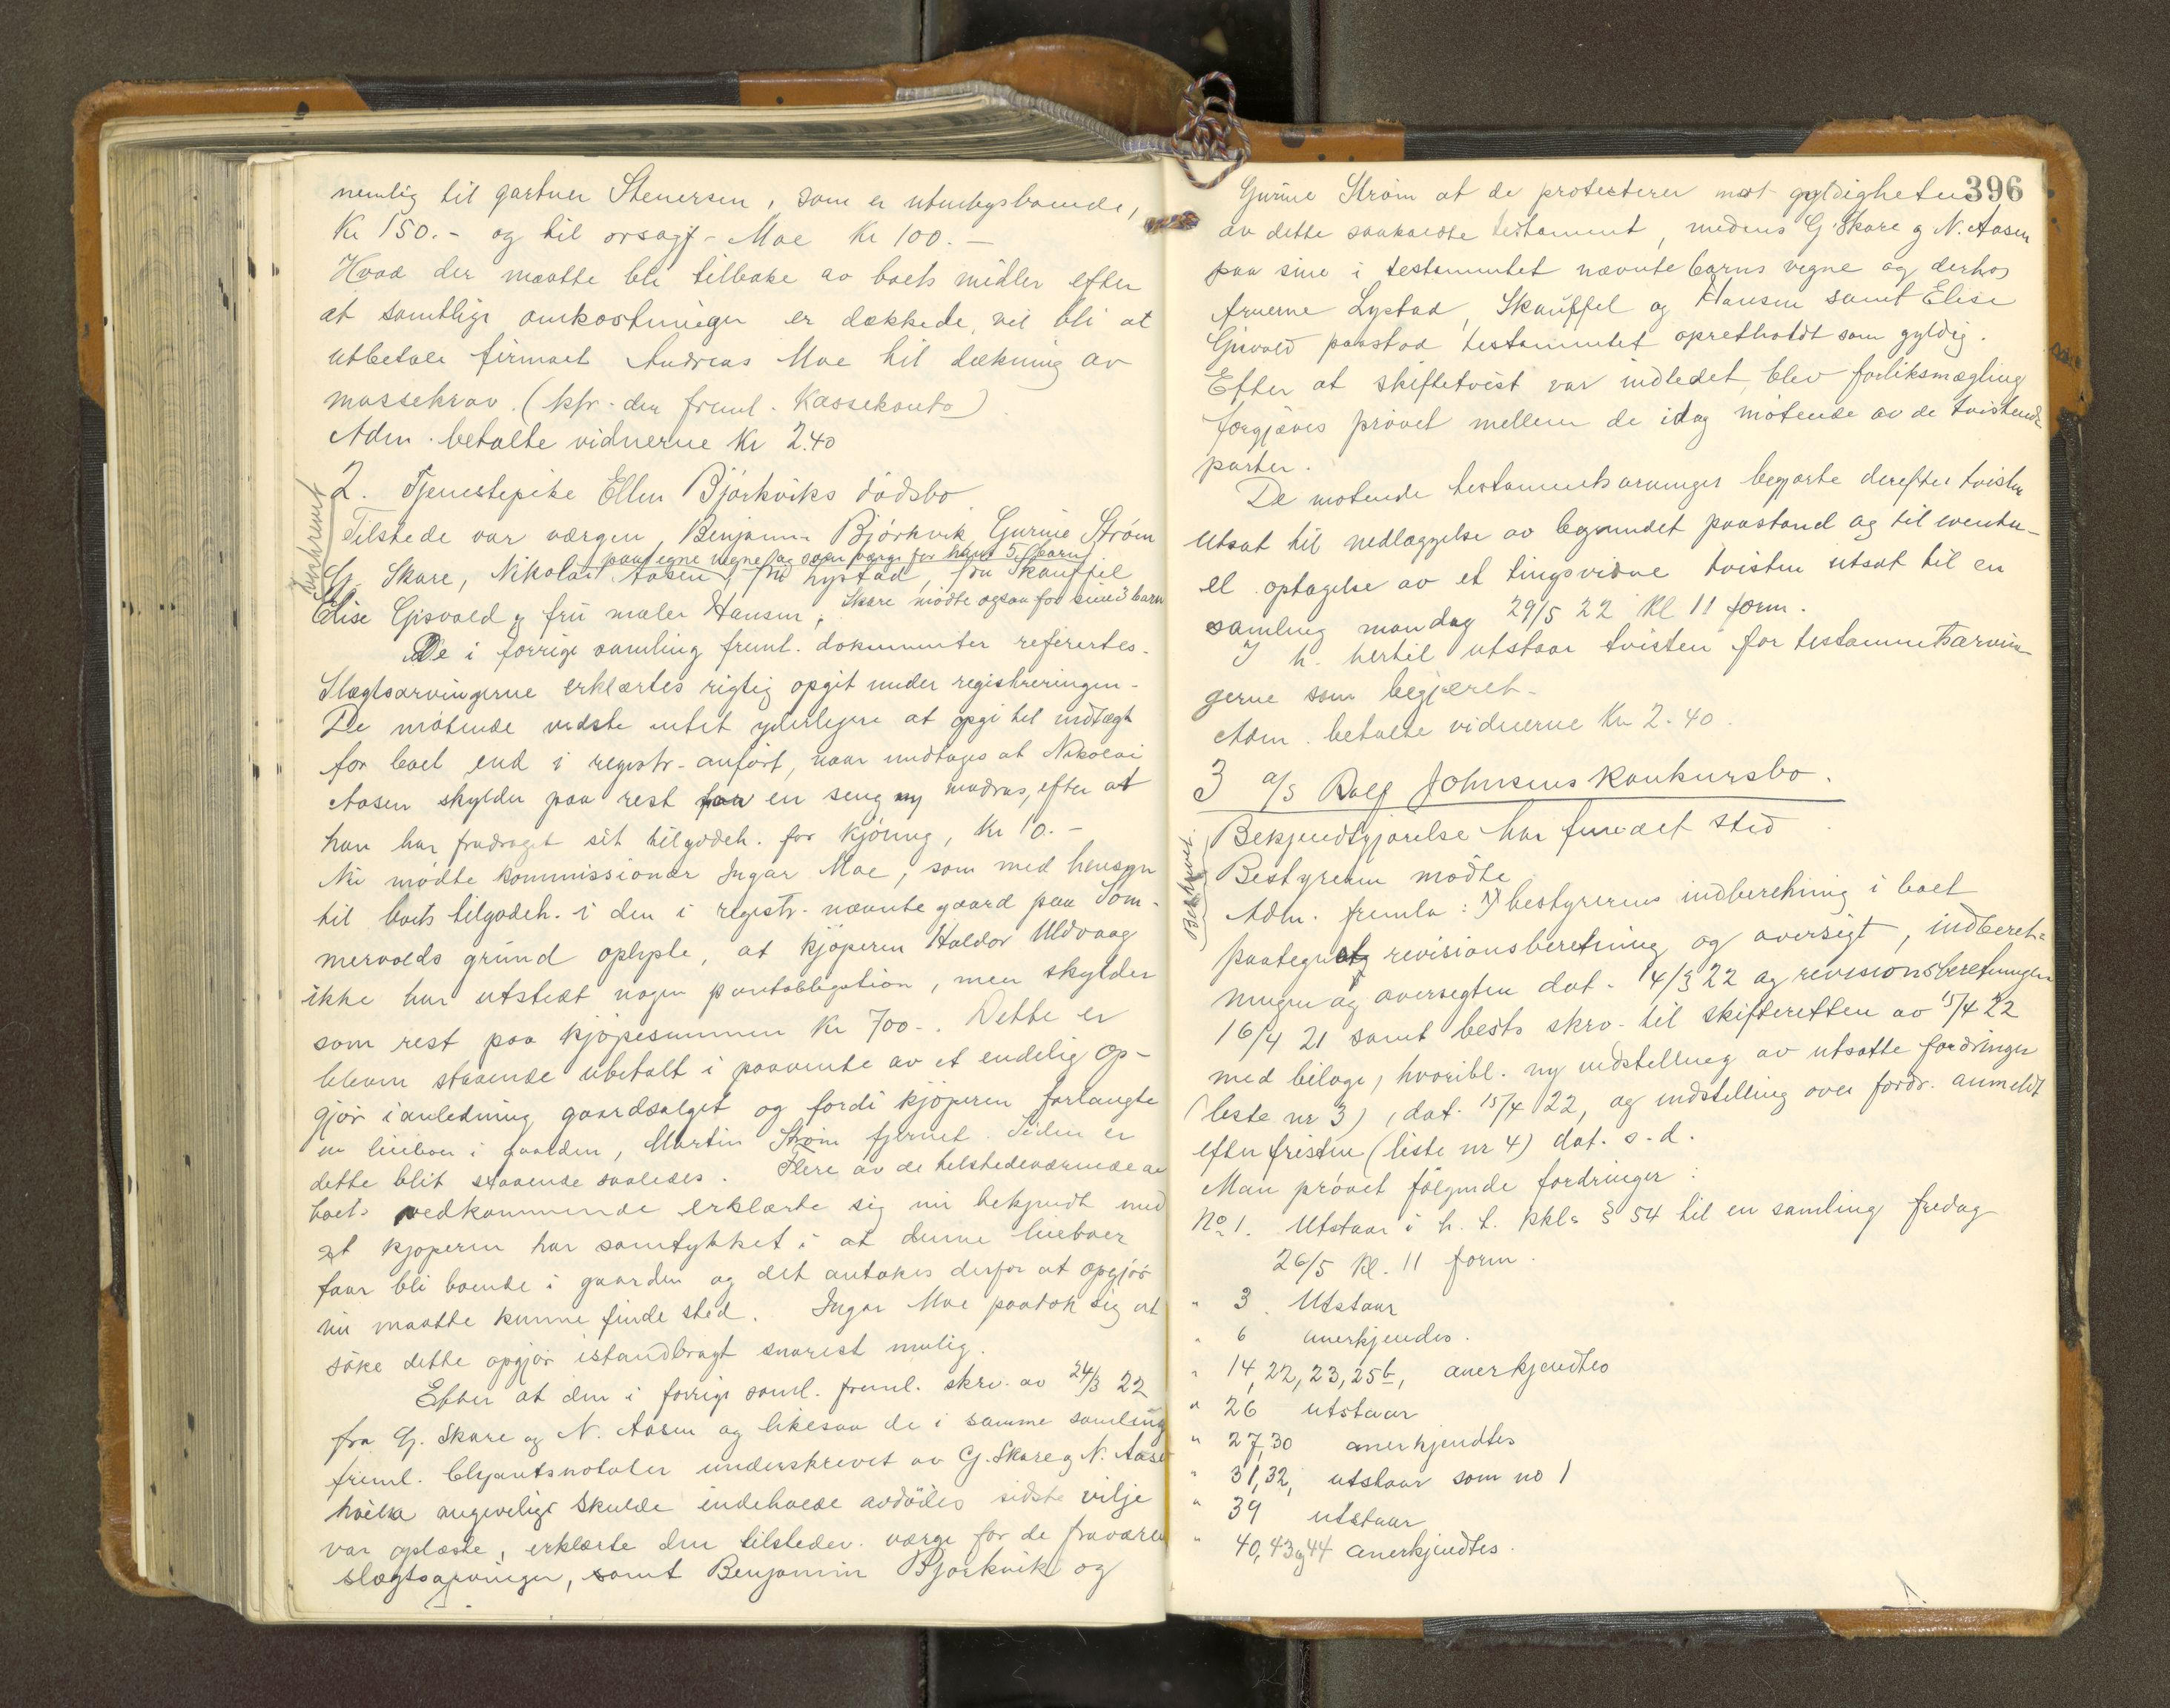 nemlig til gartner Stenersen, som er utenbysboende,
Kr 150.- og til orsagf. Moe Kr 100.-
Hvad der maatte bli tilbake av boets midler efter
at samtlige omkostninger er dækkede, vil bli at
utbetale firmaet Andreas Moe til dækning av
massekrav. (kfr. den freml. Kassekonto)
Adm. betalte vidnerne Kr 2.40
2. Tjenestepike Ellen Bjørkviks dødsbo
Tilstede var værgen, Benjamin Bjørkvik, Gurine Strøm
paa egne vegne og som værge for hans 5 barn
G. Skare, Nikolai Aasen, fru Lystad, fru Skauffel
Elise Gjisvold og fru maler Hansen, Skare mødte ogsaa for sine 3 barn
De i forrige samling freml. dokumenter refereres.
Slægtsarvingerne erklærtes rigtig opgit under registreringen.
De møtende vidste intet yderligere at opgi til indtægt
for boet end i registr. anført, naar undtages at Nikolai
Aasen skylder paa rest for en seng og madras, efter at
han har fradraget sit tilgodeh. for kjøring, Kr 10.-
Nu mødte kommissionær Ingar Moe, som med hensyn
til boets tilgodeh. i den i registr. nævnte gaard paa Som-
mervolds grund oplyste, at kjøperen Haldor Uldvaag
ikke har utstedt nogen pantobligation, men skylder
som rest paa kjøpesummen Kr 700.-. Dette er
bleven staaende ubetalt i paavente av et endelig op-
gjør i anledning gaardsalget og fordi kjøperen forlangte
en leieboer i gaarden, Martin Strøm fjernet. Siden er
dette blit staaende saaledes. Flere av de tilstedeværende av
boets vedkommende erklærte sig nu bekjendt med
at kjøperen har samtykket i at denne leieboer
faar bli boende i gaarden og det antakes derfor at opgjør
nu maatte kunne finde sted. Ingar Moe paatok sig at
søke dette opgjør istandbragt snarest mulig.
Efter at den i forrige saml. freml. skriv. av 24/3 22
fra G. Skare og N. Aasen og likesaa de i samme samling
freml. blyantsnotater underskrevet av G. Skare og N. Aasen
hvilke angivelige skulde indeholde avdødes sidste vilje
var oplæste, erklærte den tilstedev. værge for de fraværen
slægtsarvinger, samt Benjamin Bjørkvik og
Beskrevet
396
Gurine Strøm at de protesterer mot gyldigheten
av dette saakaldte testament, medens G. Skare og N. Aasen
paa sine i testamentet nævnte barns vegne og derhos
fruerne Lystad, Skauffel og Hansen samt Elise
Gjisvold paastod testamentet opretholdt som gyldig.
Efter at skiftetvist var indledet, blev forliksmægling
forgjæves prøvet mellem de idag møtende av de tvistende
parter.
De møtende testamentsarvinger begjærte derefter tvisten
utsat til nedlæggelse av begrundet paastand og til eventu-
el optagelse av et tingsvidne tvisten utsat til en
samling mandag 29/5 22 Kl 11 form.
I h. hertil utstaar tvisten for testamentsarvin-
gerne som begjæret.
Adm. betalte vidnerne Kr 2.40.
3 a/s Rolf Johnsens Konkursbo.
Beskrevet.
Bekjendtgjørelse har fundet sted
Bestyreren mødte
Adm. fremla: 1) bestyrerens indberetning i boet
paategnet revisionsberetning og oversigt, indberet-
ningen og oversigten dat. 14/3 22 og revisionsberetningen
16/4 21 samt bests skriv. til skifteretten av 15/4 22
med bilage, hvoribl. ny indstilling av utsatte fordringer
(liste nr 3), dat. 15/4 22, og indstilling over fordr. anmeldt
efter fristen (liste nr 4) dat. s.d.
Man prøvet følgende fordringer:
No 1. Utstaar i h. t. kkl. § 54 til en samling fredag
26/5 kl. 11 form.
" 3. Utstaar
" 6 anerkjendes.
" 14, 22, 23, 25b, anerkjendtes
" 26 utstaar
" 27, 30 anerkjendtes
" 31, 32, utstaar som no 1
" 39 utstaar
" 40, 43 og 44 anerkjendtes.